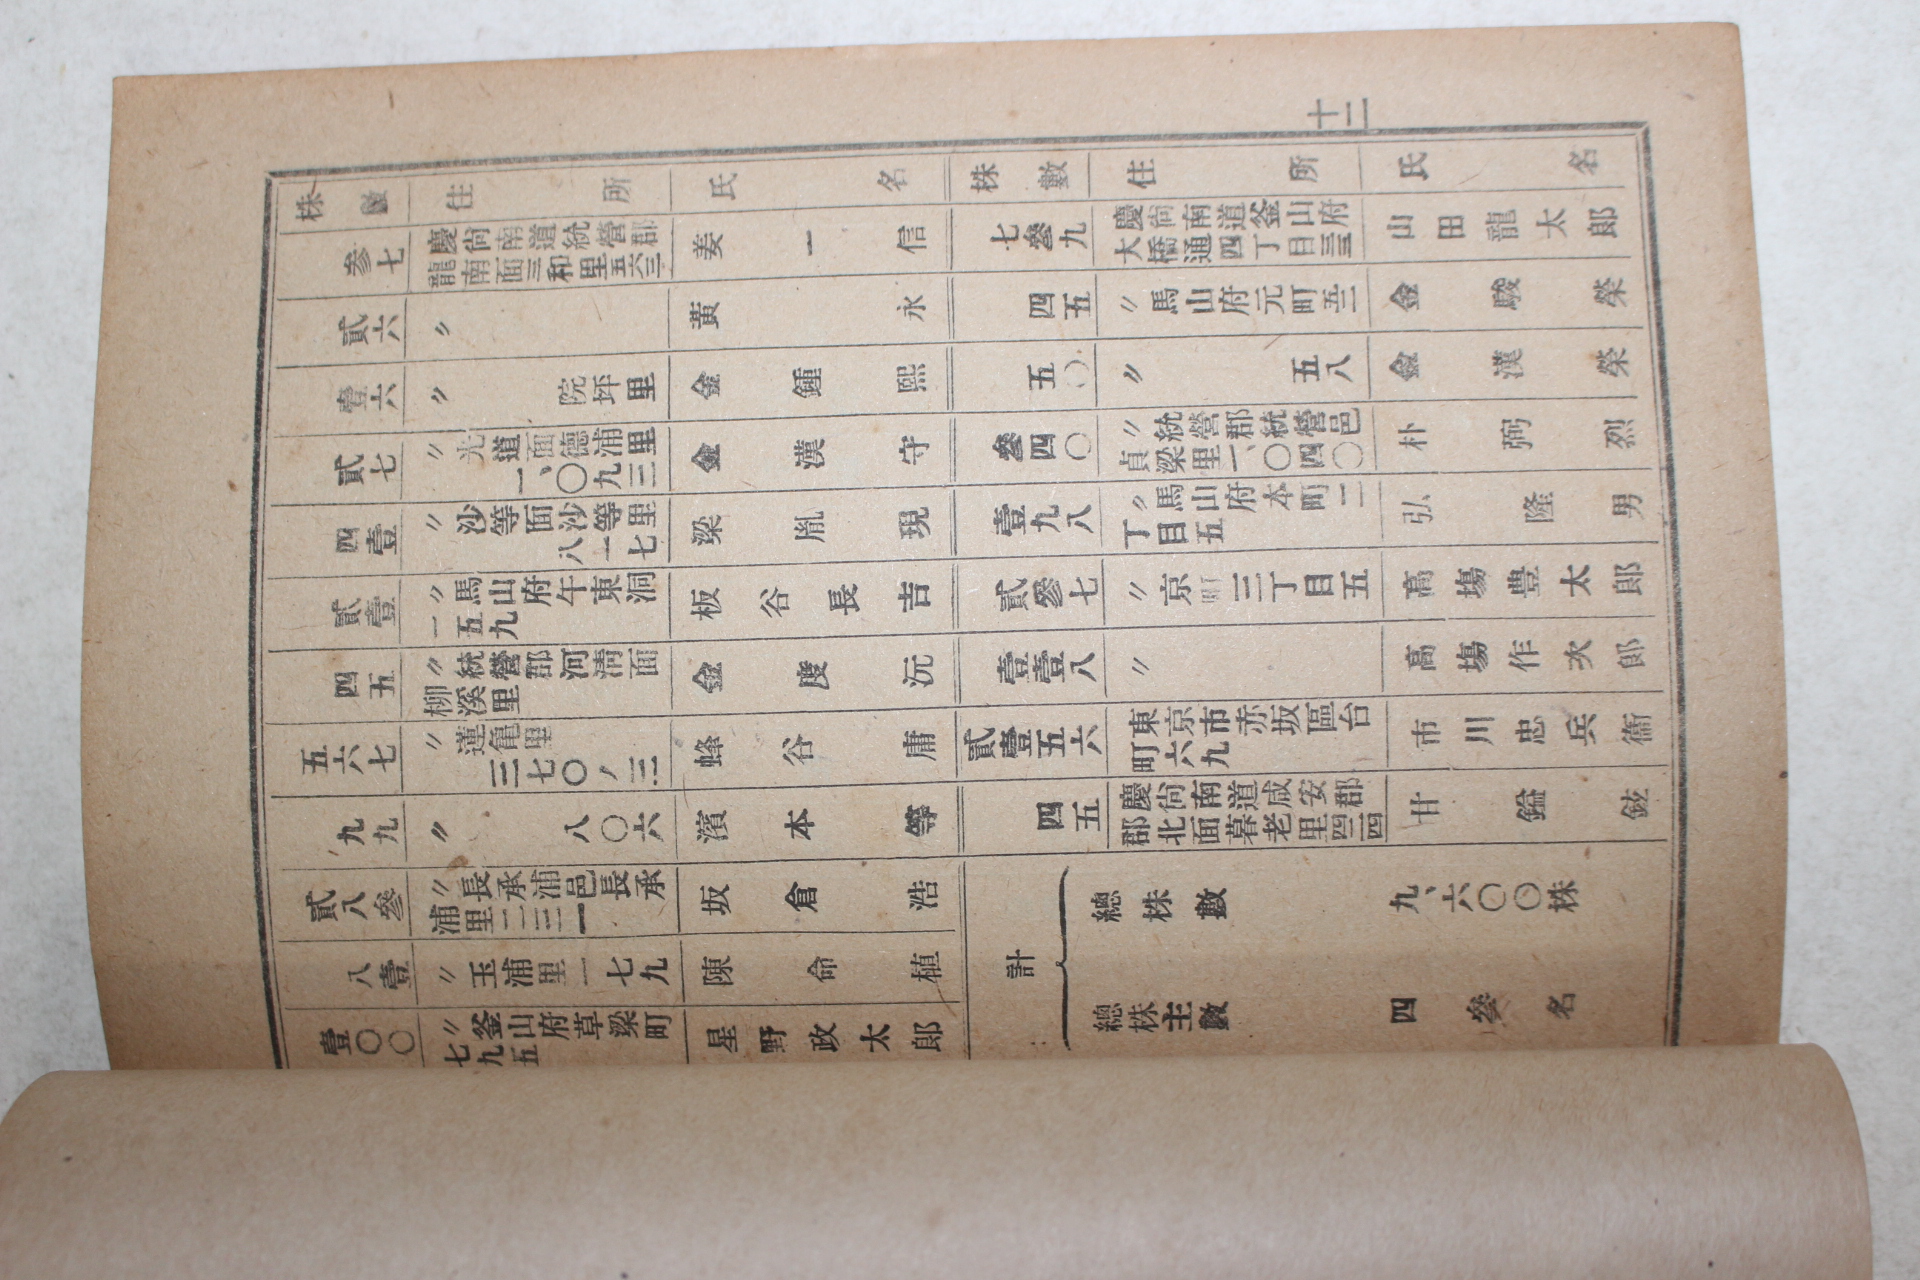 株數 住所 氏名
參七 慶尙南道統營郡
龍南面三和里五六三 姜一信
貳六 〃 黃永
壹六 〃 院坪里 金鍾熙
貳七 〃光道面德浦里
一、〇九三 金漢守
四壹 〃沙等面沙等里
八一七 梁胤現
貳壹 〃馬山府午東洞
一五九 板谷長吉
四五 〃統營郡河淸面
柳溪里 金度沅
五六七 〃蓮亀里
三七〇ノ三 蜂谷庸
九九 〃 八〇六 濱本等
貳八參 〃長承浦邑長承
浦里二三一 坂倉浩
八壹 〃玉浦里一七九 陳命植
壹〇〇 〃釜山府草梁町
七九五 星野政太郎
株數 住所 氏名
七參九 慶尙南道釜山府
大橋通四丁目三三 山田龍太郎
四五 〃馬山府元町五二 金駿榮
五〇 〃 五八 金漢榮
參四〇 〃統營郡統營邑
貞梁里一、〇四〇 朴弼烈
壹九八 〃馬山府本町二
丁目五 弘隆男
貳參七 〃京町三丁目五 高塲豊太郎
壹壹八 〃 高塲作次郎
貳壹五六 東京市赤坂區台
町六九 市川忠兵衞
四五 慶尙南道咸安郡
郡北面暮老里四二四 甘鎰鉉
計
總株數 九、六〇〇株
總株主數 四參名
十二